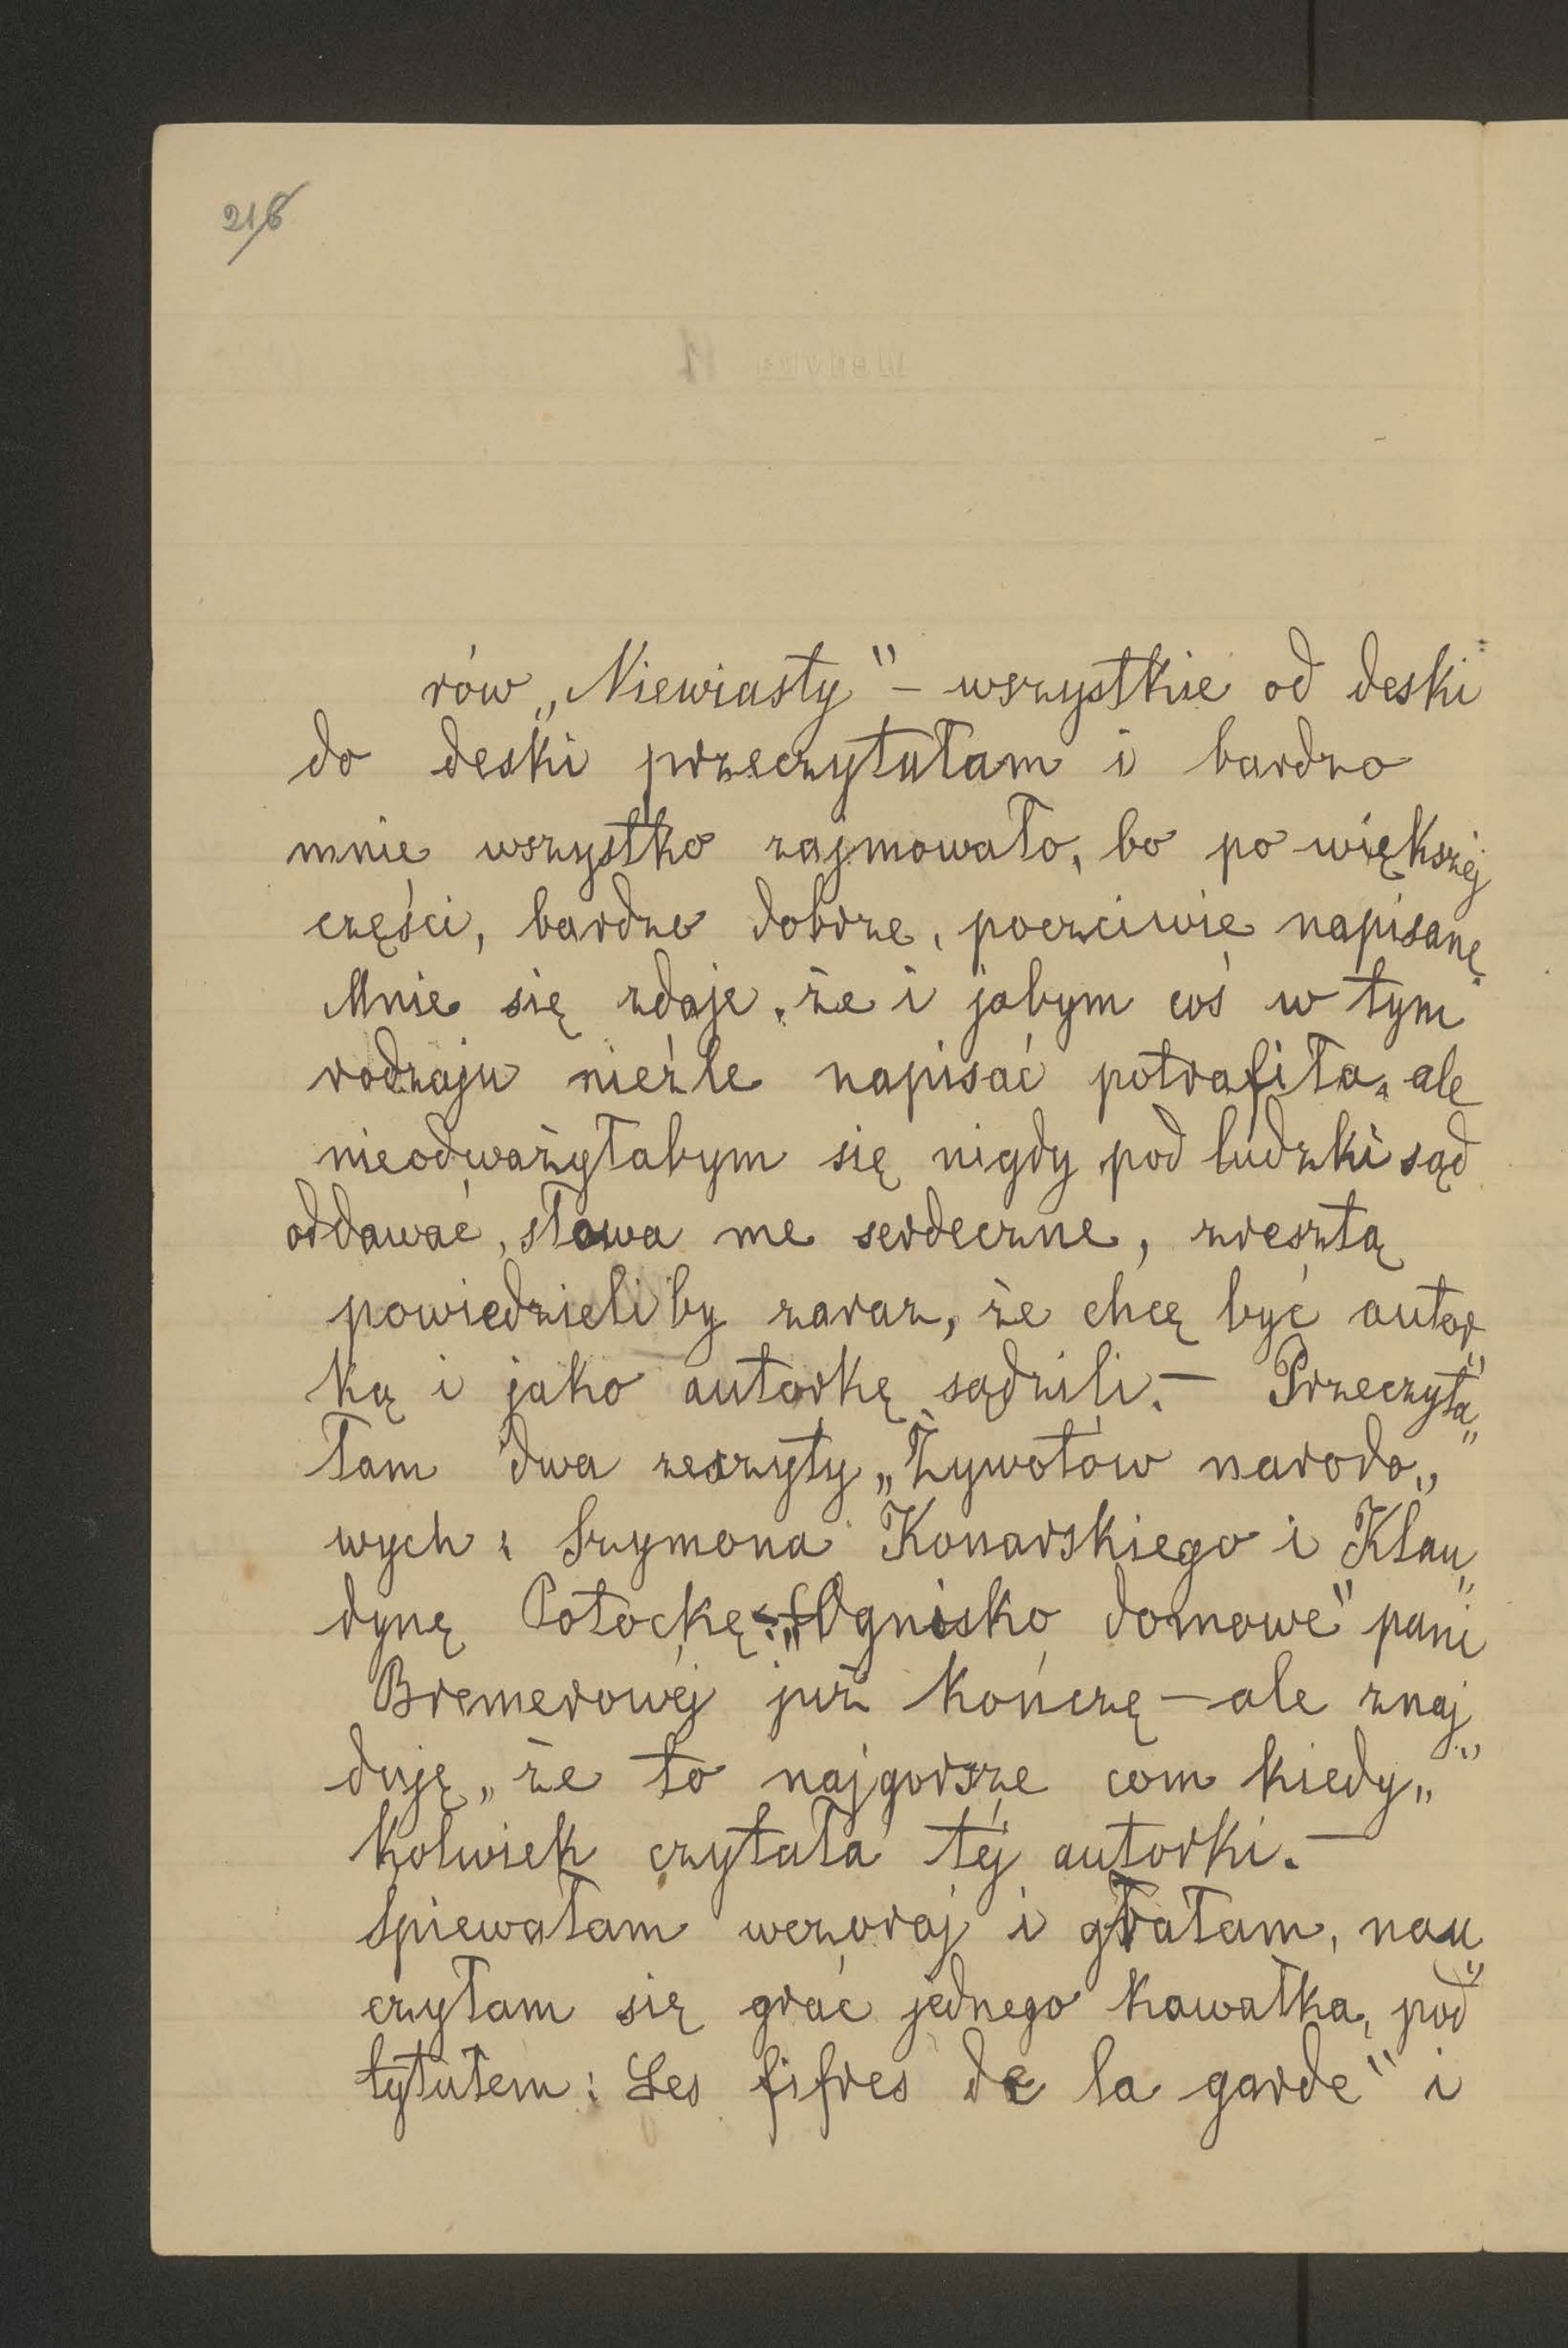 216
rów „Niewiasty" – wszystkie od deski
do deski przeczytałam i bardzo
mnie wszystko zajmowało, bo po większéj
części, bardzo dobrze, poczciwie napisane.
Mnie się zdaje, że i jabym coś w tym
rodzaju nieźle napisać potrafiła, ale
nieodważyłabym się nigdy pod ludzki sąd
oddawać, słowa me serdeczne, zresztą
powiedzieliby zaraz, że chcę być autor„
ką i jako autorkę sądzili. – Przeczyta„
łam dwa zeszyty „Żywotów narodo„
wych: Szymona Konarskiego i Klau„
dynę Potocką. „Ognisko domowe" pani
Bremerowéj już kończę – ale znaj„
duję, że to najgorsze com kiedy„
kolwiek czytała téj autorki. –
Śpiewałam wczoraj i grałam, nau„
czyłam się grać jednego kawałka, pod
tytułem: Les fifres de la garde" i